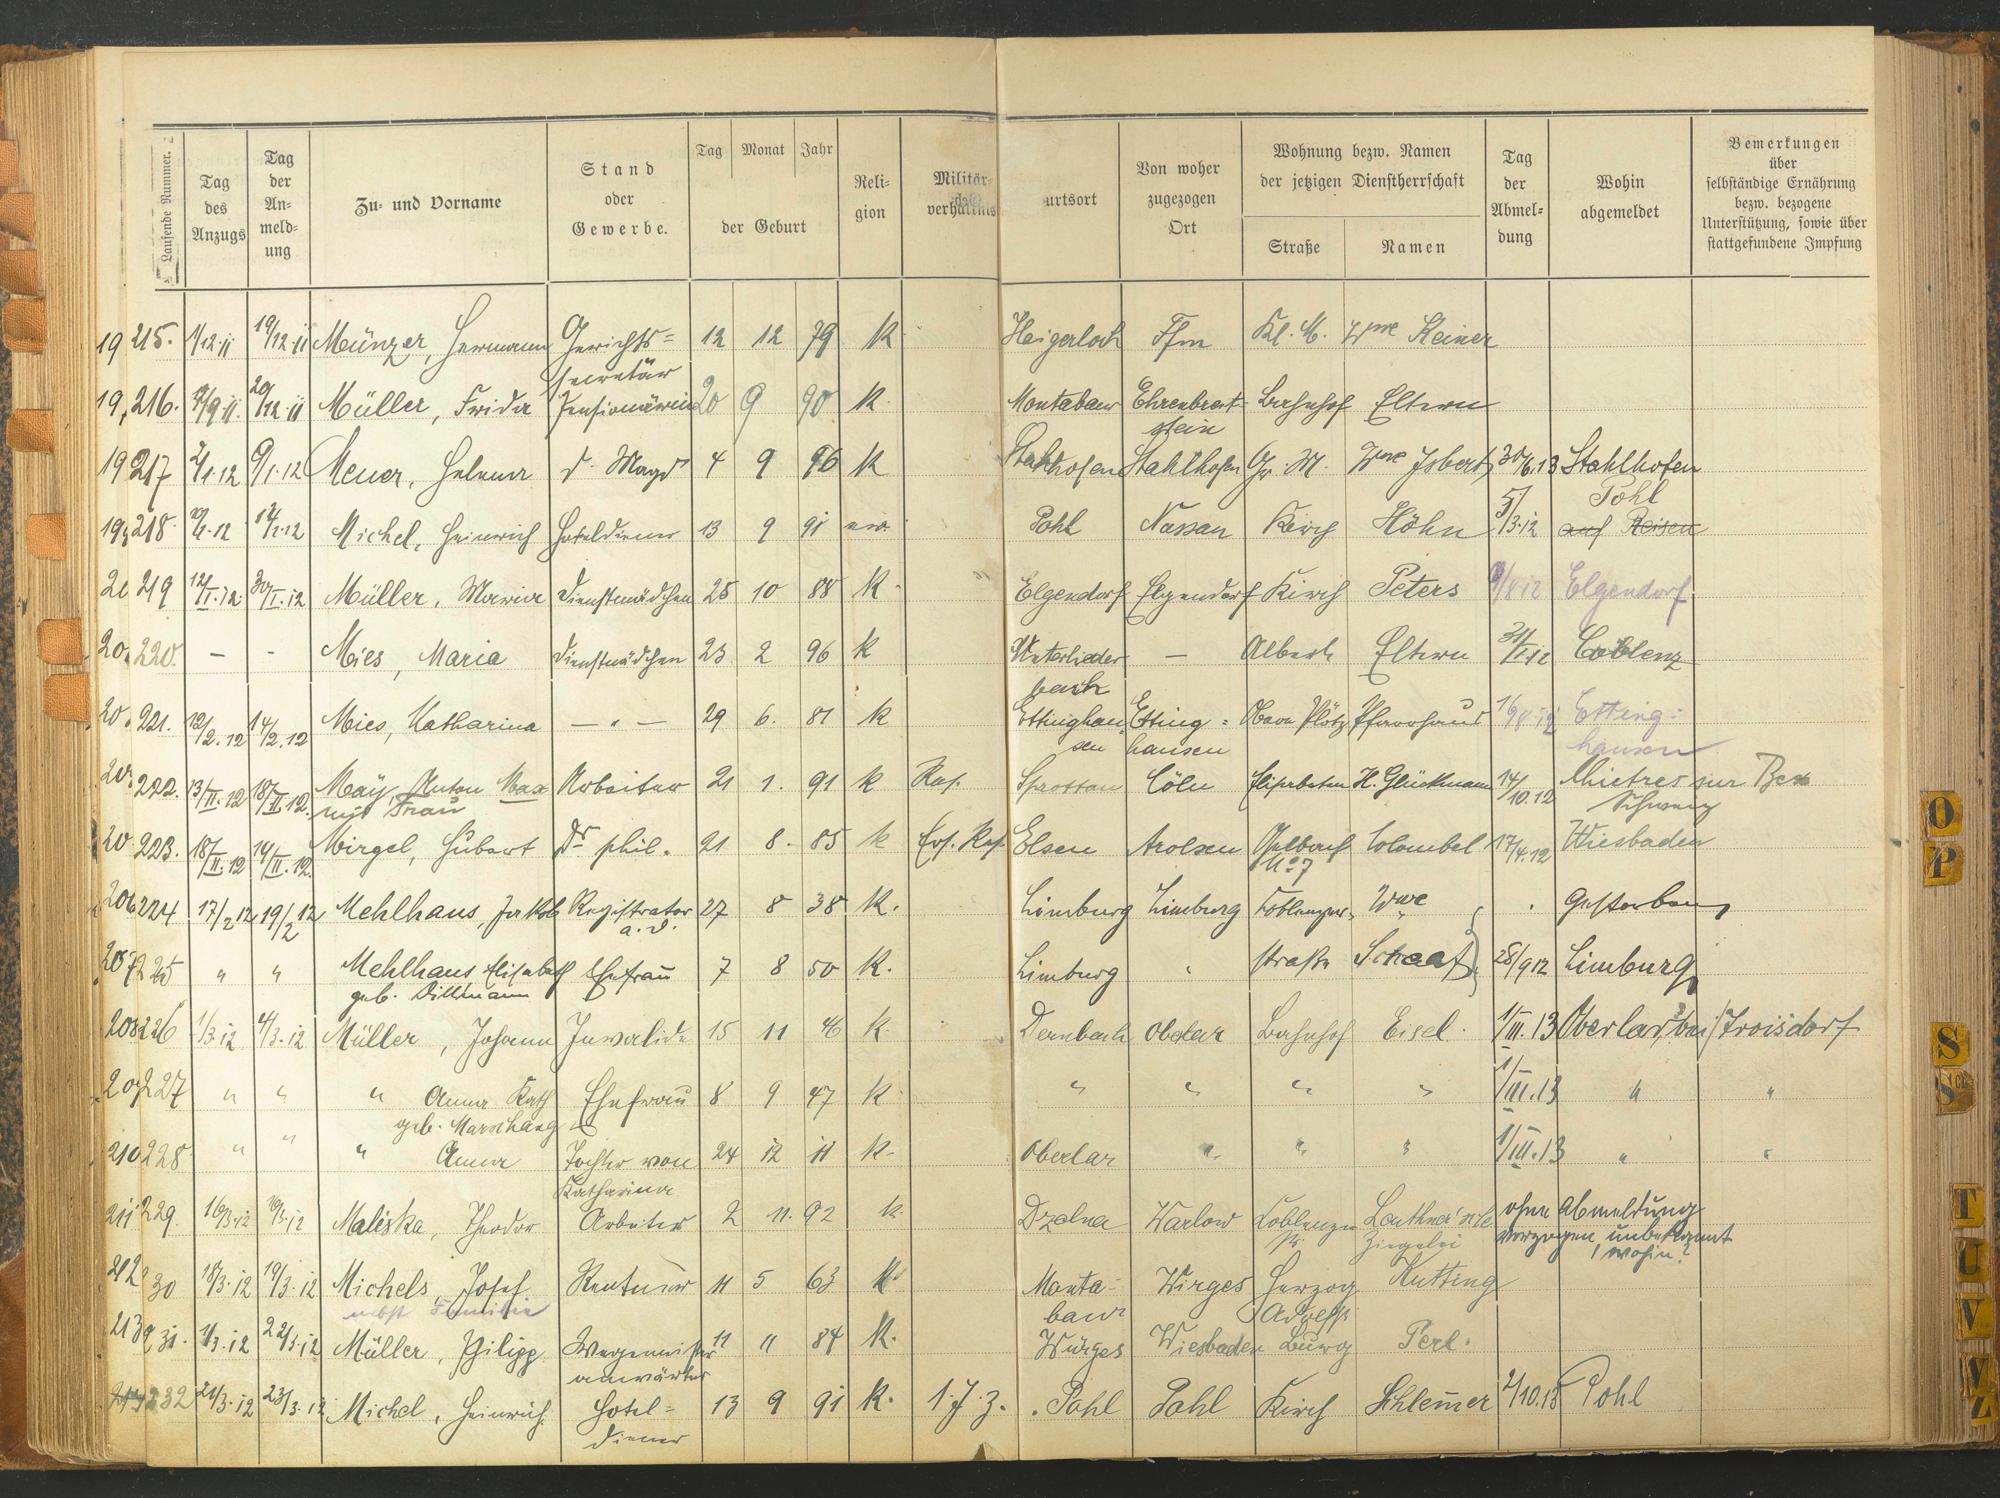 Laufende Nummer.
Tag des Anzugs
Tag der An-meld-ung
Zu- und Vorname
Stand oder Gewerbe.
Tag Monat Jahr
der Geburt
Reli-gion
Militär-verhältnis
urtsort
Von woher zugezogen Ort
Wohnung bezw. Namen der jetzigen Dienstherrschaft
Straße Namen
Tag der Abmel-dung
Wohin abgemeldet
Bemerkungen über selbständige Ernährung bezw. bezogene Unterstützung, sowie über stattgefundene Impfung
215. 1/12 11 19/12 11 Münzer, Hermann Gerichts= 12 12 79 K. Haigerloch Ffm Kl. M. Wwe Keiner
secretär
216. 20/12 11 Müller, Frida Pensionärin 20 9 90 K. Montabaur Ehrenbreit- Bahnhof Eltern
stein
217 2/1 12 9/1 12 Meuer, Helena d. Magd 4 9 96 K Stahlhofen Stahlhofen Gr. M. Wwe Isbert 30/6.13 Stahlhofen
Pohl
218. Michel, Heinrich Hoteldiener 13 9 91 Pohl Nassau Kirch Höhn 5/3.12 auf Reisen
219 12/I.12 30/I.12 Müller, Maria Dienstmädchen 25 10 88 K. Elgendorf Elgendorf Kirch Peters 9/8 12 Elgendorf
220. — - Mies, Maria Dienstmädchen 23 2 96 K Unterlieder — Albert Eltern Coblenz
bach
221. 12/2.12 14/2.12 Mies, Katharina — " — 29 6. 81 K Ettinghau Etting= Obere Plötz Pfarrhaus Etting=
sen hausen hausen
222. 13/II.12 18/II.12 May, Anton Max Arbeiter 21 1. 91 K Res. Sprottau Cöln Elisabeten H. Glückmann 14/10.12
mit Frau
223. 18/II.12 19/II.12. Mirgel, Hubert Dr phil. 21 8. 85 K Ers. Res. Elsen Arolsen Gelbach Colombel 17/4.12 Wiesbaden
No 7
224 17/2 12 19/2 12 Mehlhaus, Jakob Registrator 27 8 38 K. Limburg Limburg Coblenzer- Wwe Gestorben
a. D.
225 " " Mehlhaus Elisabeth Ehefrau 7 8 50 K. Limburg " straße Schaaf 28/9 12 Limburg
geb. Dillmann
226 1/3.12 4/3.12 Müller, Johann Invalide 15 11 46 K. Dernbach Oberlar Bahnhof Eisel. 1/III.13 Oberlar bei Troisdorf
227 " " " Anna Kath Ehefrau 8 9 47 K. " " " " 1/III.13 " "
geb. Marschang
210 228 " " " Anna Tochter von 24 12 11 K. Oberlar " " " 1/III.13 " "
Katharina
211 229. Maliska, Theodor Arbeiter 2 11. 92 K. Dzelna Warlow Coblenzer ohne Abmeldung
str. Ziegelei verzogen, unbekannt
wohin?
212 30 18/3.12 19/3.12 Michels, Josef Rentner 11 5 63 K. Monta- Wirges Herzog Kutting
nebst Familie baur Adolfstr
213 31. 1/3.12 22/3.12 Müller, Philipp Wegemeister 11 11 84 K. Würges Wiesbaden Burg Perl.
anwärter
232 21/3.12 23/3.12 Michel, Heinrich Hotel= 13 9 91 K. 1. J. z. Pohl Pohl Kirch Schlemer 2/10.13 Pohl
diener
O
P
S
Sch
T
U
V
W
Z